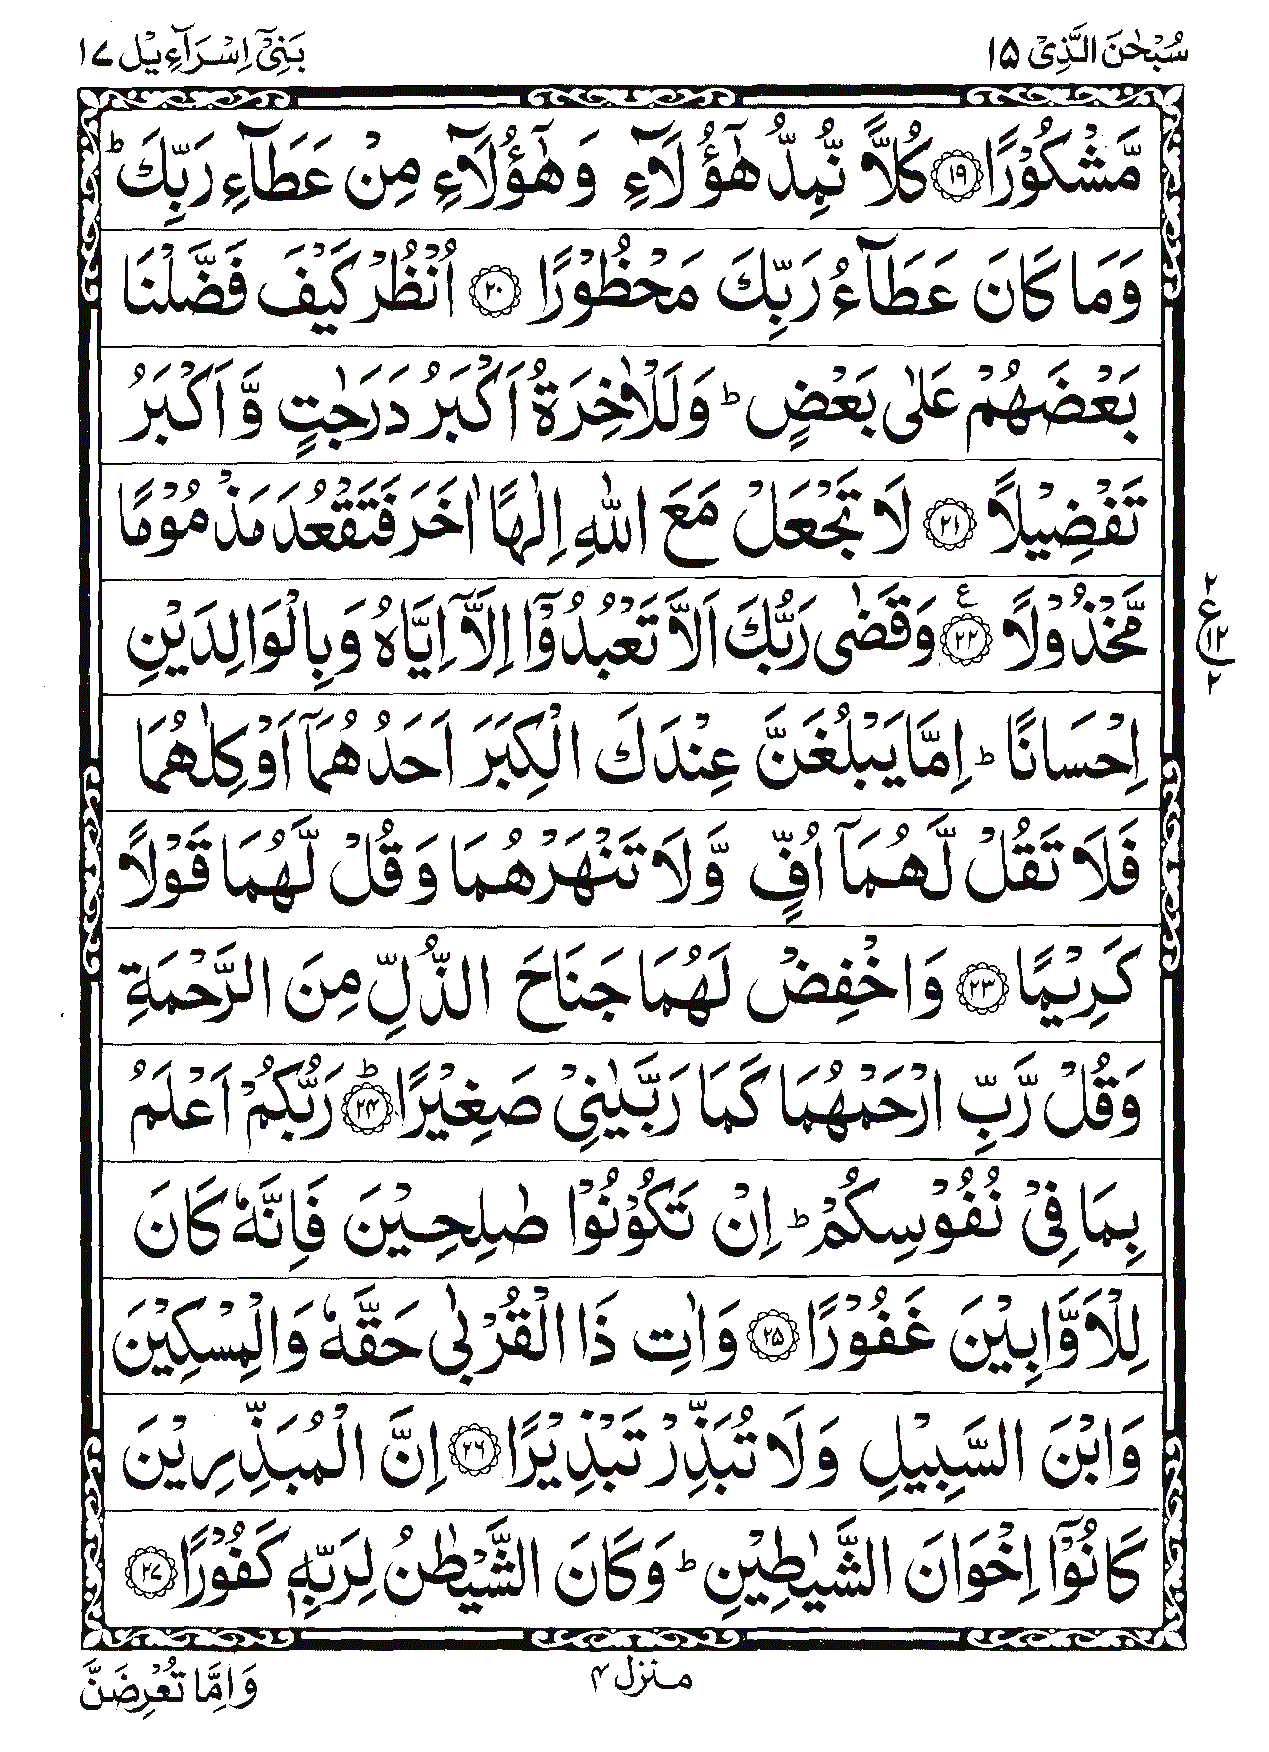 سُبْحٰنَ الَّذِیْ ۱۵
بَنِیْۤ اِسْرَآءِیْل ۱۷
مَّشْكُوْرًا ﴿۱۹﴾ كُلًّا نُّمِدُّ هٰۤؤُلَآءِ وَهٰۤؤُلَآءِ مِنْ عَطَآءِ رَبِّكَ ؕ
وَمَا كَانَ عَطَآءُ رَبِّكَ مَحْظُوْرًا ﴿۲۰﴾ اُنْظُرْ كَیْفَ فَضَّلْنَا
بَعْضَهُمْ عَلٰی بَعْضٍ ؕ وَلَلْاٰخِرَةُ اَكْبَرُ دَرَجٰتٍ وَّ اَكْبَرُ
تَفْضِیْلًا ﴿۲۱﴾ لَا تَجْعَلْ مَعَ اللّٰهِ اِلٰهًا اٰخَرَ فَتَقْعُدَ مَذْمُوْمًا
مَّخْذُوْلًا ﴿۲۲﴾ ع وَقَضٰی رَبُّكَ اَلَّا تَعْبُدُوْۤا اِلَّاۤ اِیَّاهُ وَبِالْوَالِدَیْنِ
۲ ع ۱۲ ۲
اِحْسَانًا ؕ اِمَّا یَبْلُغَنَّ عِنْدَكَ الْكِبَرَ اَحَدُهُمَاۤ اَوْ كِلٰهُمَا
فَلَا تَقُلْ لَّهُمَاۤ اُفٍّ وَّلَا تَنْهَرْهُمَا وَقُلْ لَّهُمَا قَوْلًا
كَرِیْمًا ﴿۲۳﴾ وَاخْفِضْ لَهُمَا جَنَاحَ الذُّلِّ مِنَ الرَّحْمَةِ
وَقُلْ رَّبِّ ارْحَمْهُمَا كَمَا رَبَّیٰنِیْ صَغِیْرًا ﴿۲۴﴾ ؕ رَبُّكُمْ اَعْلَمُ
بِمَا فِیْ نُفُوْسِكُمْ ؕ اِنْ تَكُوْنُوْا صٰلِحِیْنَ فَاِنَّهٗ كَانَ
لِلْاَوَّابِیْنَ غَفُوْرًا ﴿۲۵﴾ وَاٰتِ ذَا الْقُرْبٰی حَقَّهٗ وَالْمِسْكِیْنَ
وَابْنَ السَّبِیْلِ وَلَا تُبَذِّرْ تَبْذِیْرًا ﴿۲۶﴾ اِنَّ الْمُبَذِّرِیْنَ
كَانُوْۤا اِخْوَانَ الشَّیٰطِیْنِ ؕ وَكَانَ الشَّیْطٰنُ لِرَبِّهٖ كَفُوْرًا ﴿۲۷﴾
منزل ۴
وَاِمَّا تُعْرِضَنَّ